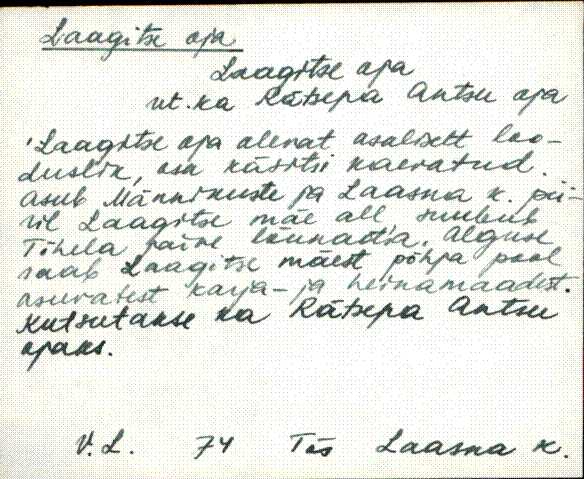 Laagitse oja
Laagitse oja
vt. ka Rätsepa Antsu oja
'Laagitse oja olevat osaliselt loo-
duslik, osa käsitsi kaevatud.
Asub Männikuste ja Laasna k. pii-
ril Laagitse mäe all suubub
Tõhela järve lõunaotsa. Alguse
saab Laagitse mäest põhja pool
asuvatest karja- ja heinamaadest.
Kutsutakse ka Rätsepa Antsu
ojaks.
V. L. 74 Tõs Laasna k.